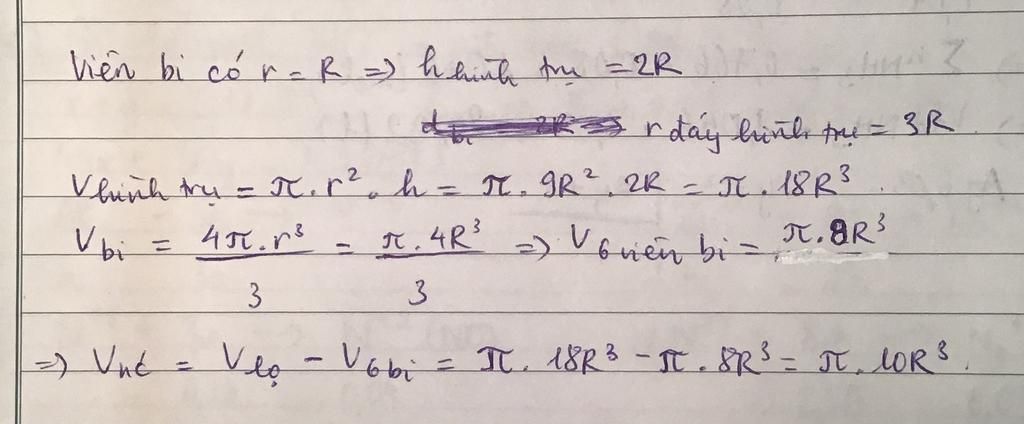 Viên bi có r = R => h hình trụ = 2R
r đáy hình trụ = 3R
V hình trụ = π. r². h = π. 9R². 2R = π. 18R³.
V bi = 4π.r³/3 = π.4R³/3 => V 6 viên bi = π.8R³
=> Vnt = V lọ - V 6 bi = π. 18R³ - π. 8R³ = π. 10R³.